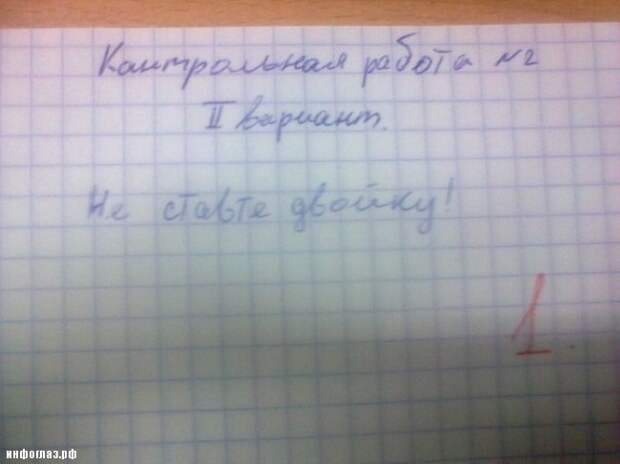 Контрольная работа №2
II вариант.
Не ставте двойку!
1.
инфоглаз.рф